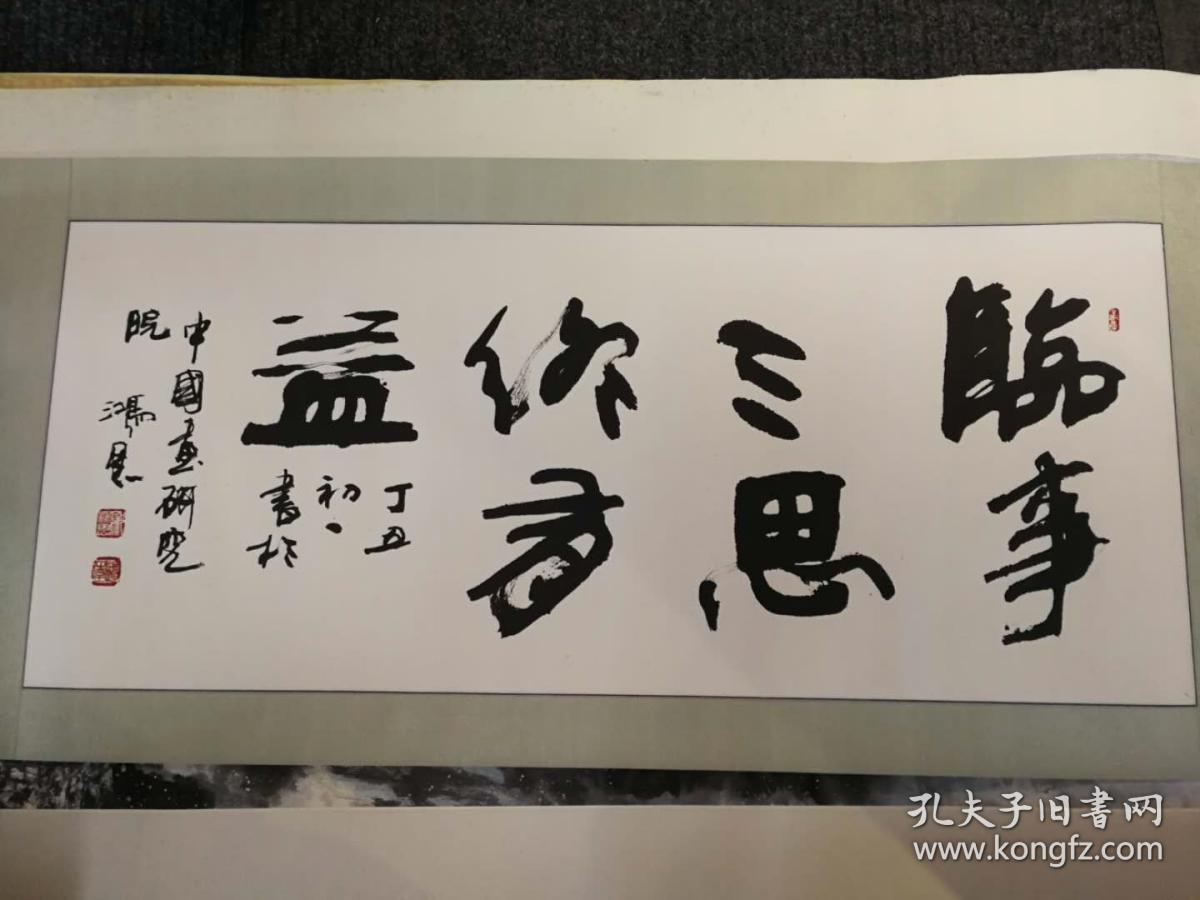 臨事
三思
終有
益
丁丑
初、
書於
中國畫研究
院
鴻恩
孔夫子旧书网
www.kongfz.com